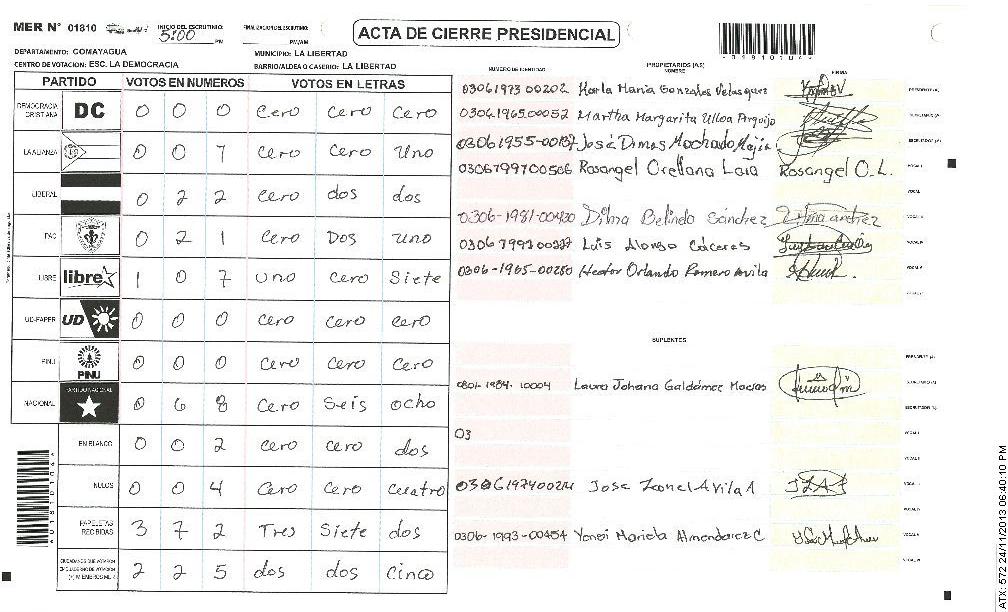 MER N° 01810 INICIO DEL ESCRUTINIO: 5:00 PM FINALIZACION DEL ESCRUTINIO: PM/AM
ACTA DE CIERRE PRESIDENCIAL
DEPARTAMENTO: COMAYAGUA MUNICIPIO: LA LIBERTAD
CENTRO DE VOTACION: ESC. LA DEMOCRACIA BARRIO/ALDEA O CASERIO: LA LIBERTAD
PARTIDO VOTOS EN NUMEROS VOTOS EN LETRAS
DEMOCRACIA CRISTIANA DC 0 0 0 Cero Cero Cero
LA ALIANZA 0 0 7 Cero Cero Uno
LIBERAL 0 2 2 Cero dos dos
PAC 0 2 1 Cero Dos uno
LIBRE libre 1 0 7 Uno Cero Siete
UD-FAPER UD 0 0 0 Cero Cero Cero
PINU PINU 0 0 0 Cero Cero Cero
NACIONAL PARTIDO NACIONAL 0 6 8 Cero Seis ocho
EN BLANCO 0 0 2 Cero Cero dos
NULOS 0 0 4 Cero Cero Cuatro
PAPELETAS RECIBIDAS 3 7 2 Tres Siete dos
CIUDADANOS QUE VOTARON 2 2 5 dos dos Cinco
NUMERO DE IDENTIDAD PROPIETARIOS (AS) NOMBRE FIRMA
0306 1973 00202 Karla Maria Gonzales Velasquez PRESIDENTE (A)
0306 1965 00052 Martha Margarita Ulloa Argujo SECRETARIO (A)
José Dimas Machado Mejia ESCRUTADOR (A)
Rosangel Orellana Lara Rosangel O.L. VOCAL I
0306-1981-00430 Dilma Belinda Sánchez
Luis Alonso Cáceres
0306-1965-00250 Hector Orlando Romero Avila
SUPLENTES
0801-1984-10004 Laura Johana Galdámez Macias
03
Jose Leonel Avila A
0306-1993-00454 Yensi Mariela Almendarez C
ATX: 572 24/11/2013 06:40:10 PM